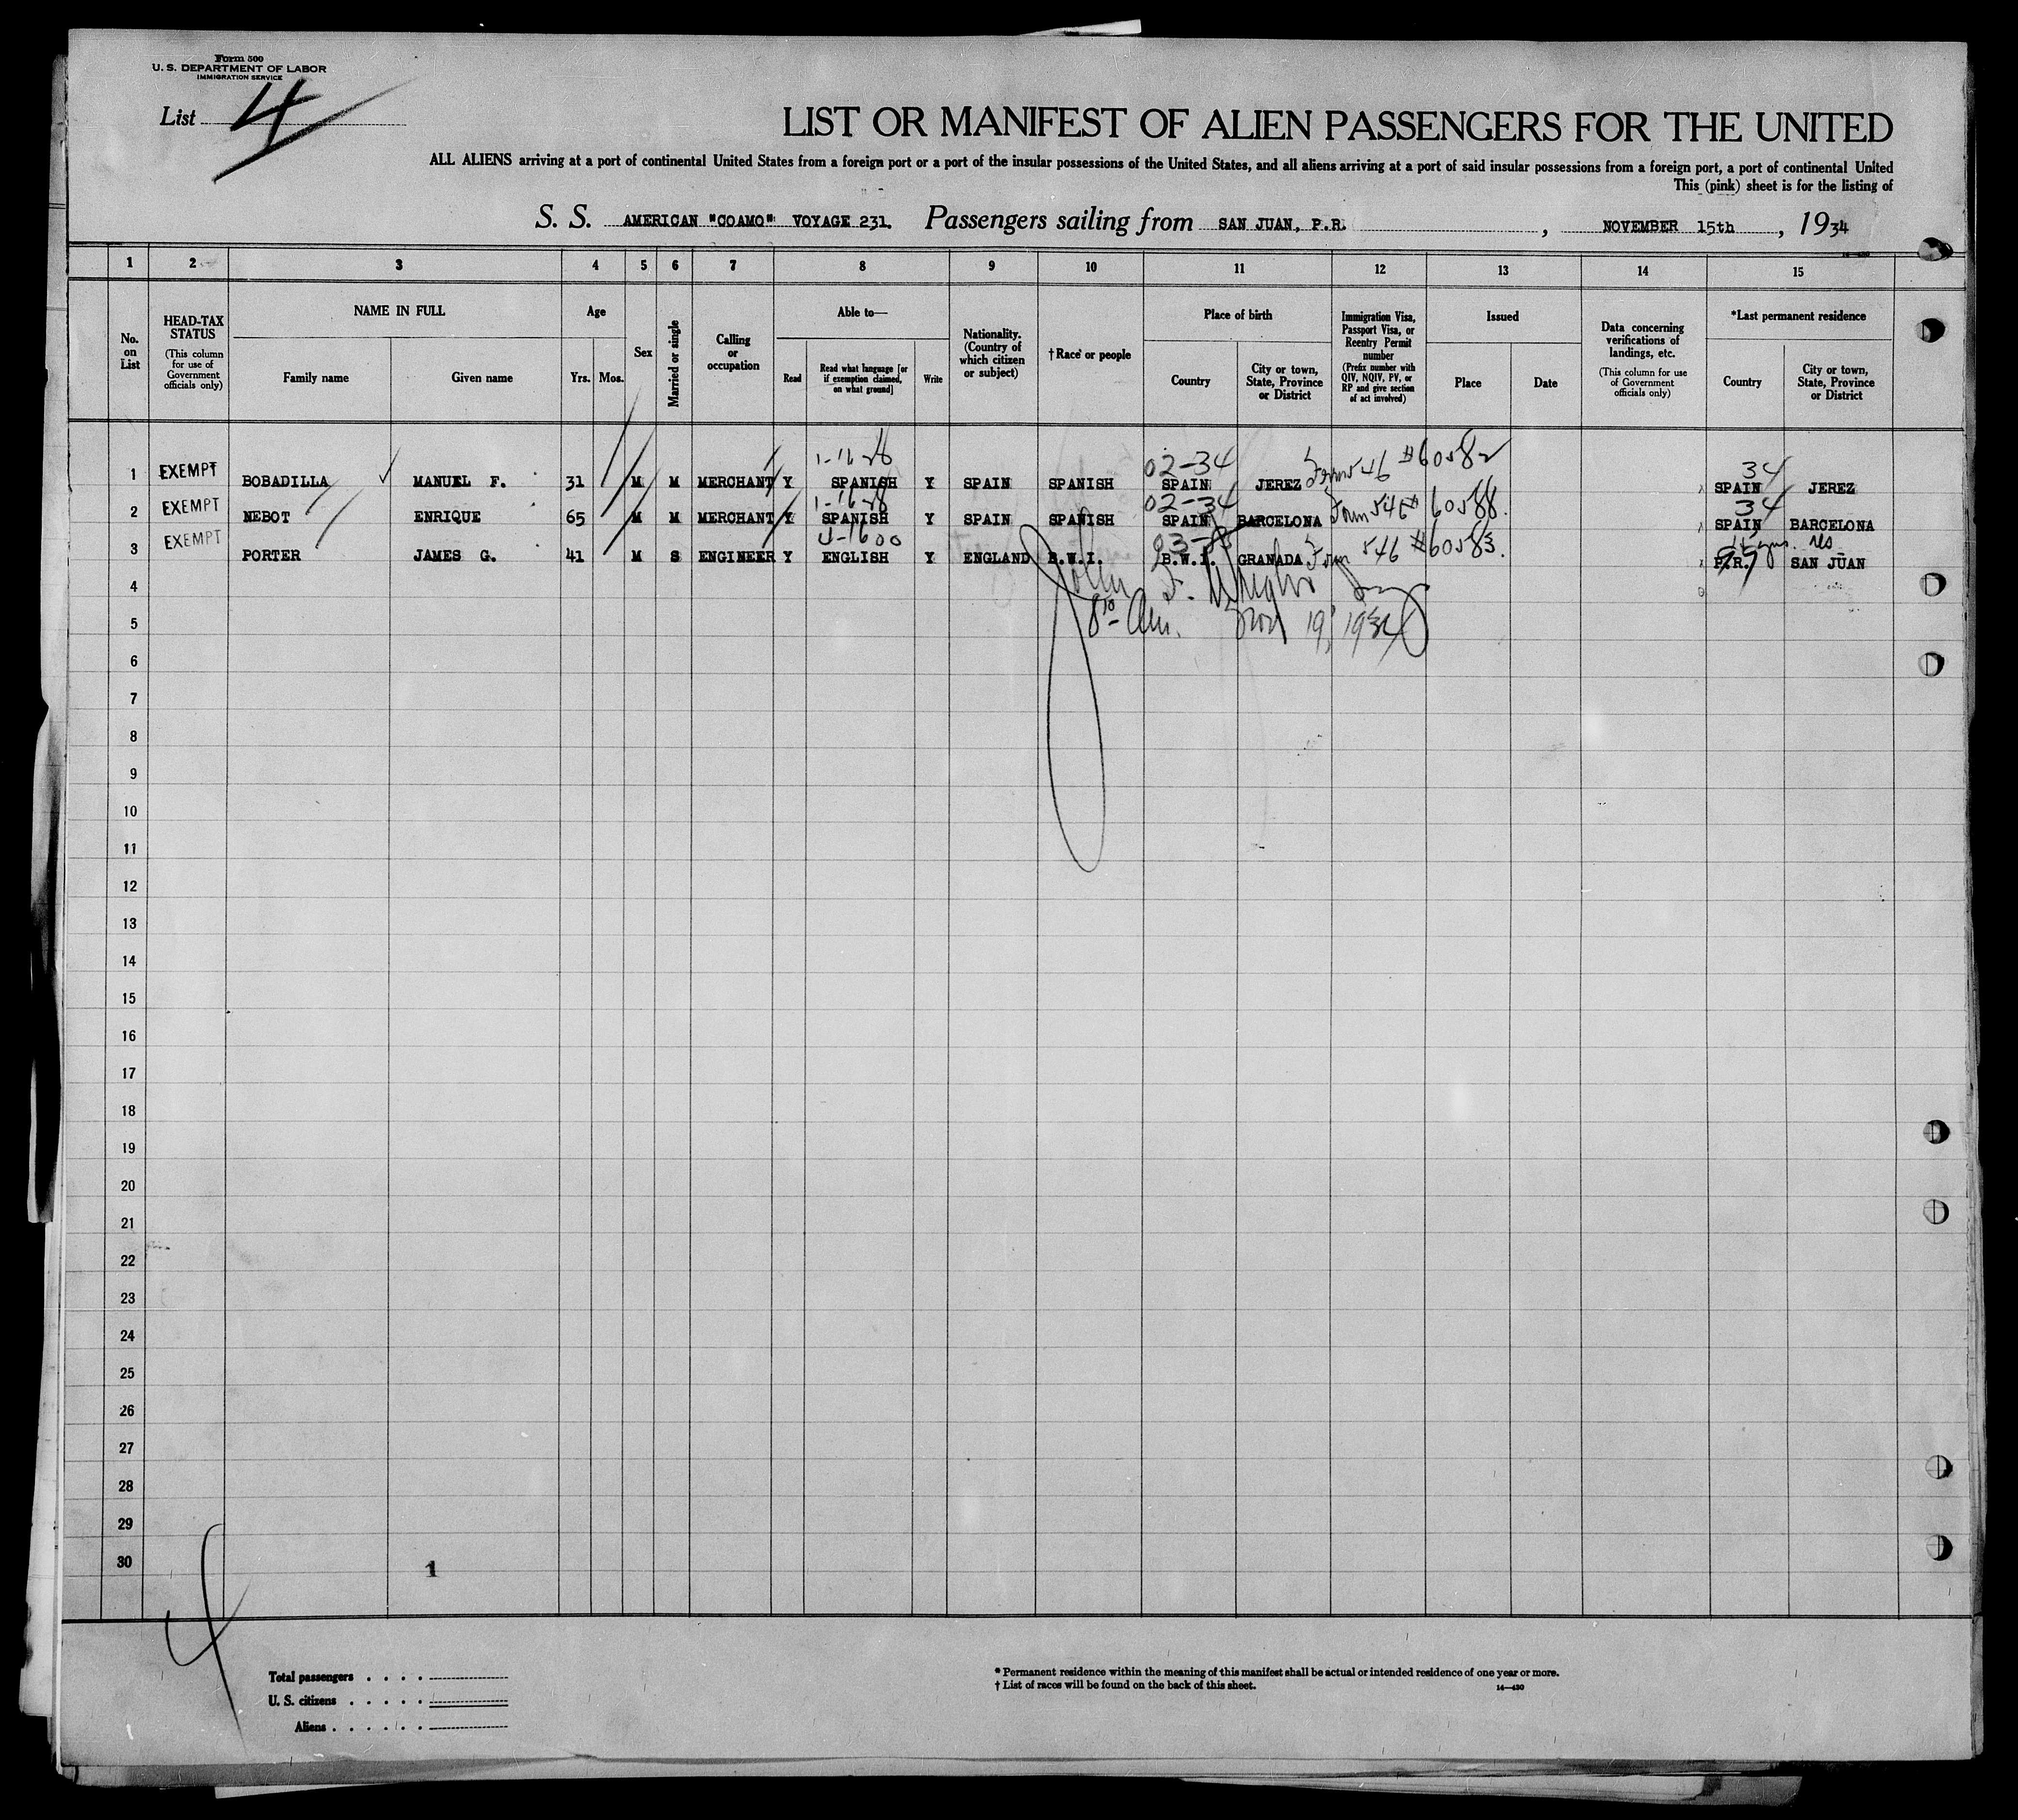 Form 500
U. S. DEPARTMENT OF LABOR
IMMIGRATION SERVICE
List 4
LIST OR MANIFEST OF ALIEN PASSENGERS FOR THE UNITED
ALL ALIENS arriving at a port of continental United States from a foreign port or a port of the insular possessions of the United States, and all aliens arriving at a port of said insular possessions from a foreign port, a port of continental United
This (pink) sheet is for the listing of
S. S. AMERICAN "COAMO" VOYAGE 231. Passengers sailing from SAN JUAN, P.R. , NOVEMBER 15th , 1934
14—430
1 2 3 4 5 6 7 8 9 10 11 12 13 14 15
No. on List
HEAD-TAX STATUS (This column for use of Government officials only)
NAME IN FULL
Family name Given name
Age
Yrs. Mos.
Sex
Married or single
Calling or occupation
Able to—
Read Read what language [or if exemption claimed, on what ground] Write
Nationality. (Country of which citizen or subject)
† Race or people
Place of birth
Country City or town, State, Province or District
Immigration Visa, Passport Visa, or Reentry Permit number (Prefix number with QIV, NQIV, PV, or RP and give section of act involved)
Issued
Place Date
Data concerning verifications of landings, etc. (This column for use of Government officials only)
*Last permanent residence
Country City or town, State, Province or District
02-34 34
1 EXEMPT BOBADILLA MANUEL F. 31 M M MERCHANT Y SPANISH Y SPAIN SPANISH SPAIN JEREZ Form 546 #60582 SPAIN JEREZ
02-34 34
2 EXEMPT NEBOT ENRIQUE 65 M M MERCHANT Y SPANISH Y SPAIN SPANISH SPAIN BARCELONA Form 546 # 60588. SPAIN BARCELONA
3 EXEMPT PORTER JAMES G. 41 M S ENGINEER Y ENGLISH Y ENGLAND B.W.I. B.W.I. GRANADA Form 546 #60583. P.R. SAN JUAN
4
John F.
5 Nov 19, 1934
6
7
8
9
10
11
12
13
14
15
16
17
18
19
20
21
22
23
24
25
26
27
28
29
30
1
4
Total passengers . . . .
U. S. citizens . . . . .
Aliens . . . . . .
* Permanent residence within the meaning of this manifest shall be actual or intended residence of one year or more.
† List of races will be found on the back of this sheet.
14—430